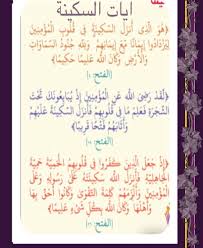 آيات السكينة
﴿هُوَ الَّذِي أَنْزَلَ السَّكِينَةَ فِي قُلُوبِ الْمُؤْمِنِينَ
لِيَزْدَادُوا إِيمَانًا مَعَ إِيمَانِهِمْ وَلِلَّهِ جُنُودُ السَّمَاوَاتِ
وَالْأَرْضِ وَكَانَ اللَّهُ عَلِيمًا حَكِيمًا﴾
﴿لَقَدْ رَضِيَ اللَّهُ عَنِ الْمُؤْمِنِينَ إِذْ يُبَايِعُونَكَ تَحْتَ
الشَّجَرَةِ فَعَلِمَ مَا فِي قُلُوبِهِمْ فَأَنْزَلَ السَّكِينَةَ عَلَيْهِمْ
وَأَثَابَهُمْ فَتْحًا قَرِيبًا﴾
﴿إِذْ جَعَلَ الَّذِينَ كَفَرُوا فِي قُلُوبِهِمُ الْحَمِيَّةَ حَمِيَّةَ
الْجَاهِلِيَّةِ فَأَنْزَلَ اللَّهُ سَكِينَتَهُ عَلَى رَسُولِهِ وَعَلَى
الْمُؤْمِنِينَ وَأَلْزَمَهُمْ كَلِمَةَ التَّقْوَى وَكَانُوا أَحَقَّ بِهَا
وَأَهْلَهَا وَكَانَ اللَّهُ بِكُلِّ شَيْءٍ عَلِيمًا﴾